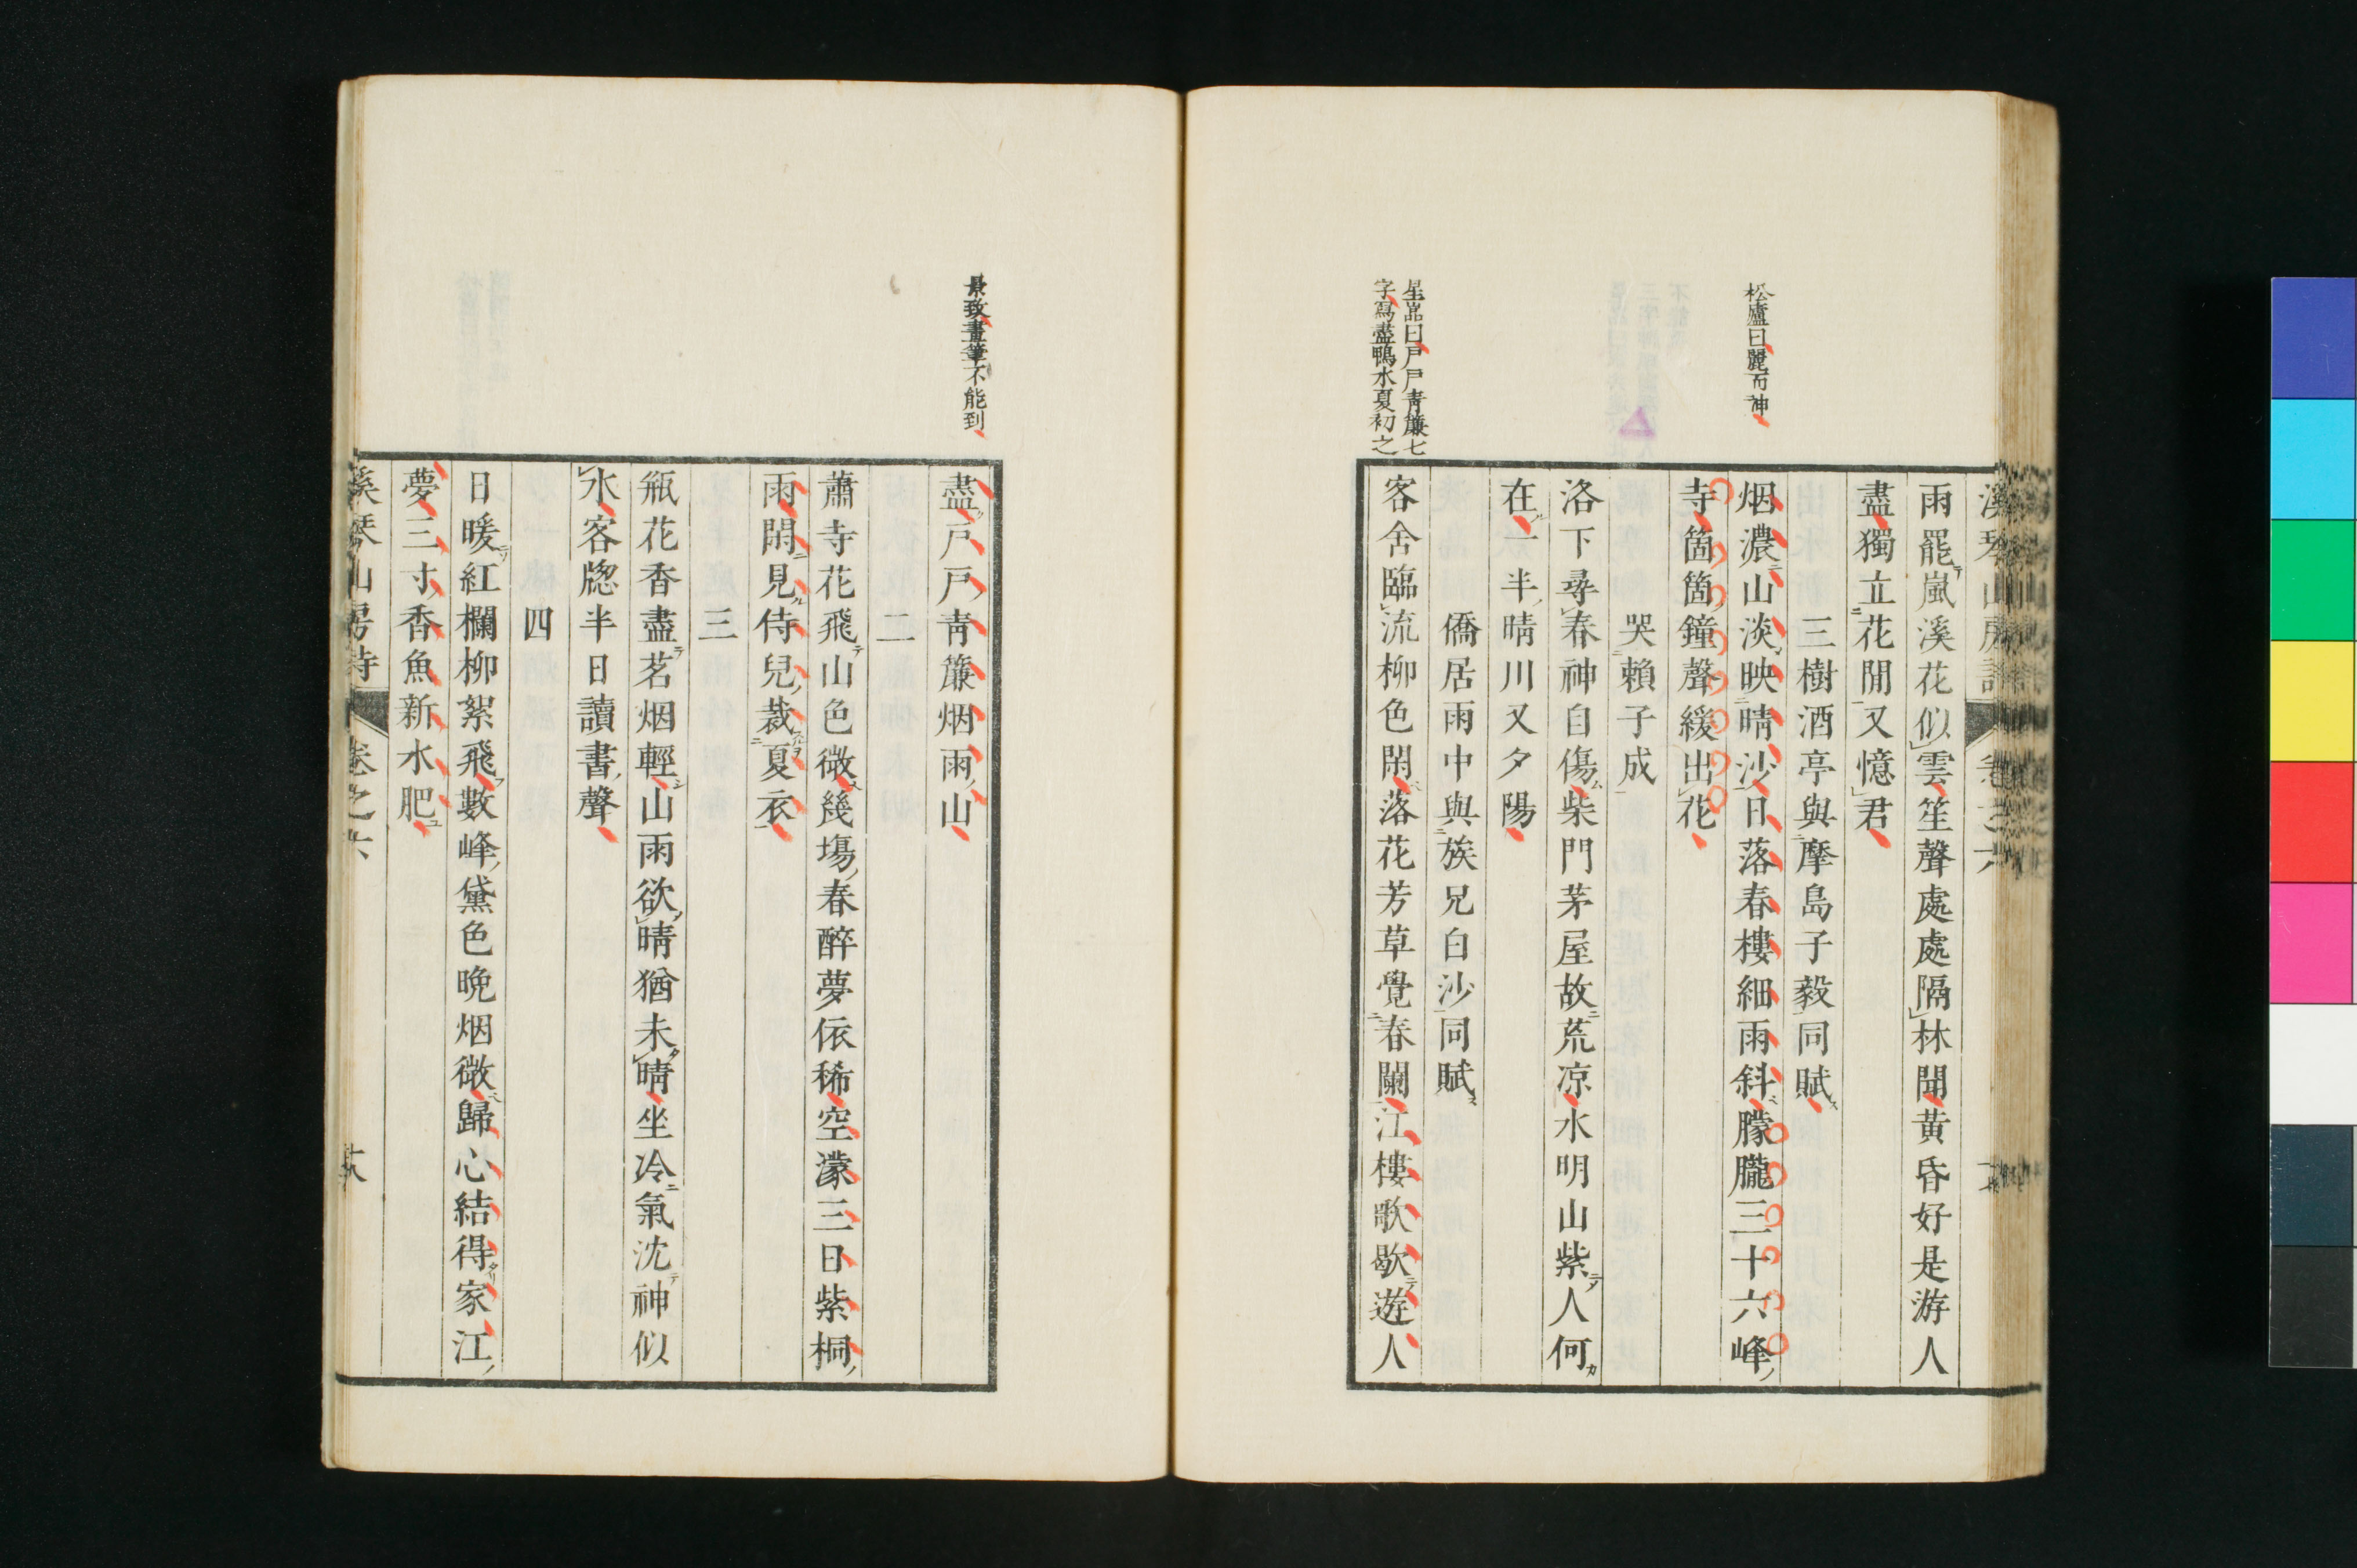 松廬曰麗而神
星喦曰戶戶靑簾七
字寫盡鴨水夏初之
雨罷嵐溪花似雲笙聲處處隔林聞黃昏好是游人
盡獨立花閒又憶君
三樹酒亭與摩島子毅同賦
烟濃山淡映晴沙日落春樓細雨斜朦朧三十六峰
寺箇箇鐘聲緩出花
哭賴子成
洛下尋春神自傷柴門茅屋故荒凉水明山紫人何
在一半晴川又夕陽
僑居雨中與族兄白沙同賦
客舍臨流柳色閑落花芳草覺春闌江樓歌歇遊人
景致畫筆不能到
盡戶戶靑簾烟雨山
二
蕭寺花飛山色微幾場春醉夢依稀空濛三日紫桐
雨閑見侍兒裁夏衣
三
瓶花香盡茗烟輕山雨欲晴猶未晴坐冷氣沈神似
水客牕半日讀書聲
四
日暖紅欄柳絮飛數峰黛色晩烟微歸心結得家江
夢三寸香魚新水肥
溪琴山房詩 卷之六 十八